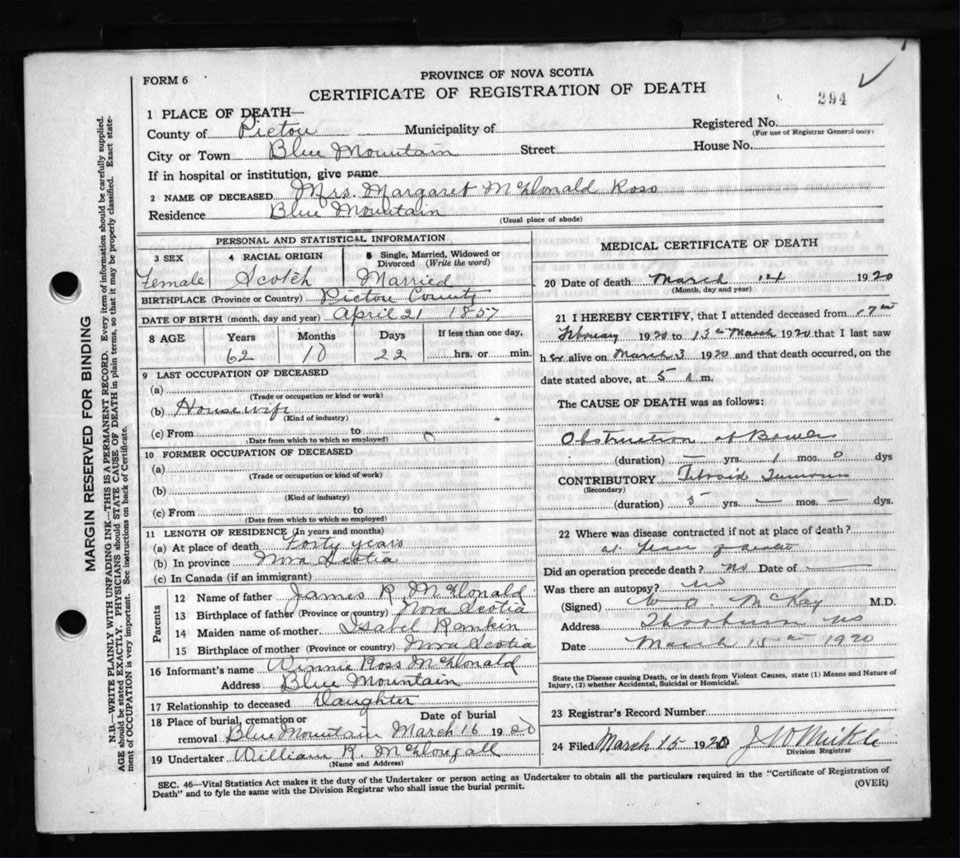 FORM 6
PROVINCE OF NOVA SCOTIA
CERTIFICATE OF REGISTRATION OF DEATH
294
1 PLACE OF DEATH—
County of Pictou Municipality of Registered No.
(For use of Registrar General only)
City or Town Blue Mountain Street House No.
If in hospital or institution, give name
2 NAME OF DECEASED Mrs. Margaret McDonald Ross
Residence Blue Mountain
(Usual place of abode)
PERSONAL AND STATISTICAL INFORMATION
3 SEX 4 RACIAL ORIGIN 5 Single, Married, Widowed or Divorced (Write the word)
Female Scotch Married
BIRTHPLACE (Province or Country) Pictou County
DATE OF BIRTH (month, day and year) April 21 1857
8 AGE Years Months Days If less than one day,
62 10 22 hrs. or min.
9 LAST OCCUPATION OF DECEASED
(a)
(Trade or occupation or kind or work)
(b) Housewife
(Kind of industry)
(c) From to
(Date from which to which so employed)
10 FORMER OCCUPATION OF DECEASED
(a)
(Trade or occupation or kind of work)
(b)
(Kind of industry)
(c) From to
(Date from which to which so employed)
11 LENGTH OF RESIDENCE (in years and months)
(a) At place of death Forty years
(b) In province Nova Scotia
(c) In Canada (if an immigrant)
Parents
12 Name of father James R McDonald
13 Birthplace of father (Province or country) Nova Scotia
14 Maiden name of mother Isabel Rankin
15 Birthplace of mother (Province or country) Nova Scotia
16 Informant's name Winnie Ross McDonald
Address Blue Mountain
17 Relationship to deceased Daughter
18 Place of burial, cremation or removal Blue Mountain Date of burial March 16 1920
19 Undertaker William R. McDougall
(Name and Address)
MEDICAL CERTIFICATE OF DEATH
20 Date of death March 14 1920
(Month, day and year)
21 I HEREBY CERTIFY, that I attended deceased from 17th
February 1920 to 13th March 1920 that I last saw
her alive on March 3 1920 and that death occurred, on the
date stated above, at 5 A m.
The CAUSE OF DEATH was as follows:
Obstruction of Bowels
(duration) — yrs. 1 mos. 0 dys
CONTRIBUTORY Fibroid Tumours
(Secondary)
(duration) 5 yrs. — mos. — dys.
22 Where was disease contracted if not at place of death?
at
Did an operation precede death? No Date of —
Was there an autopsy? No
(Signed) W. A. McKay M.D.
Address Thorburn NS
Date March 15th 1920
State the Disease causing Death, or in death from Violent Causes, state (1) Means and Nature of
Injury, (2) whether Accidental, Suicidal or Homicidal.
23 Registrar's Record Number
24 Filed March 15 1920
Division Registrar
SEC. 46—Vital Statistics Act makes it the duty of the Undertaker or person acting as Undertaker to obtain all the particulars required in the "Certificate of Registration of
Death" and to fyle the same with the Division Registrar who shall issue the burial permit.
(OVER)
MARGIN RESERVED FOR BINDING
N.B.—WRITE PLAINLY WITH UNFADING INK—THIS IS A PERMANENT RECORD. Every item of information should be carefully supplied.
AGE should be stated EXACTLY. PHYSICIANS should STATE CAUSE OF DEATH in plain terms, so that it may be properly classified. Exact statement
of OCCUPATION is very important. See instructions on back of Certificate.